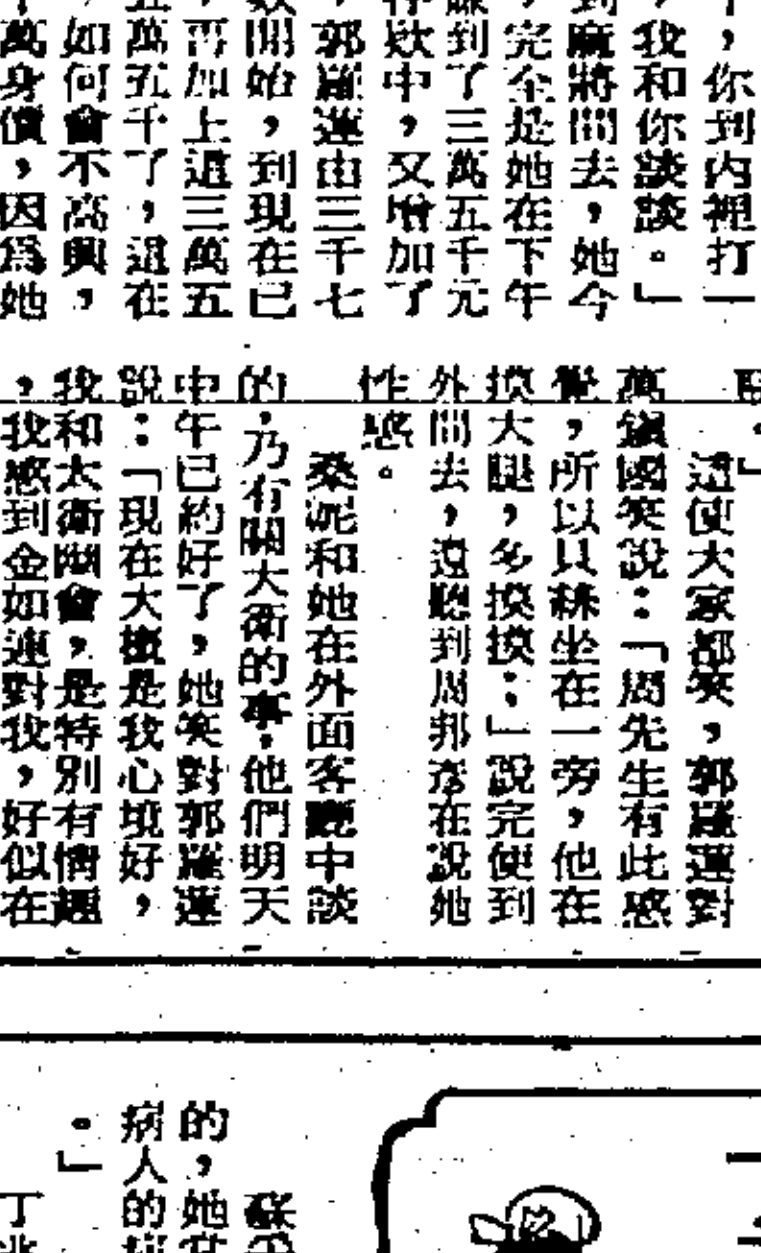 ，你到內裡打一
，我和你談談。」
到麻將間去，她今
，完全是她在下午
賺到了三萬五千元
存款中，又增加了
，郭羅蓮由三千七
款開始，到現在已
，再加上這三萬五
五萬五千了，這在
，如何會不高興，
萬身價，因爲她
。」
這使大家都笑，郭羅蓮對
萬鎮國笑說：「周先生有此感
覺，所以貝絲坐在一旁，他在
摸大腿，多摸摸：」說完便到
外間去，還聽到周邦彥在說她
性感。
桑泥和她在外面客廳中談
的，乃有關大衛的事，他們明天
中午已約好了，她笑對郭羅蓮
說：「現在大概是我心境好，
我和太衛幽會，是特別有情趣
，我感到金如連對我，好似在
蘇
的，她
病人的
。」
丁